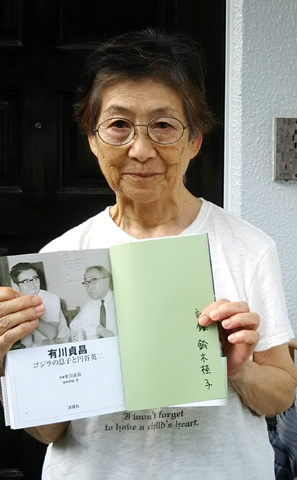 有川貞昌
ゴジラの息子と円谷英二
洋泉社
鈴木桂子
I won't forget
to have a child's heart.